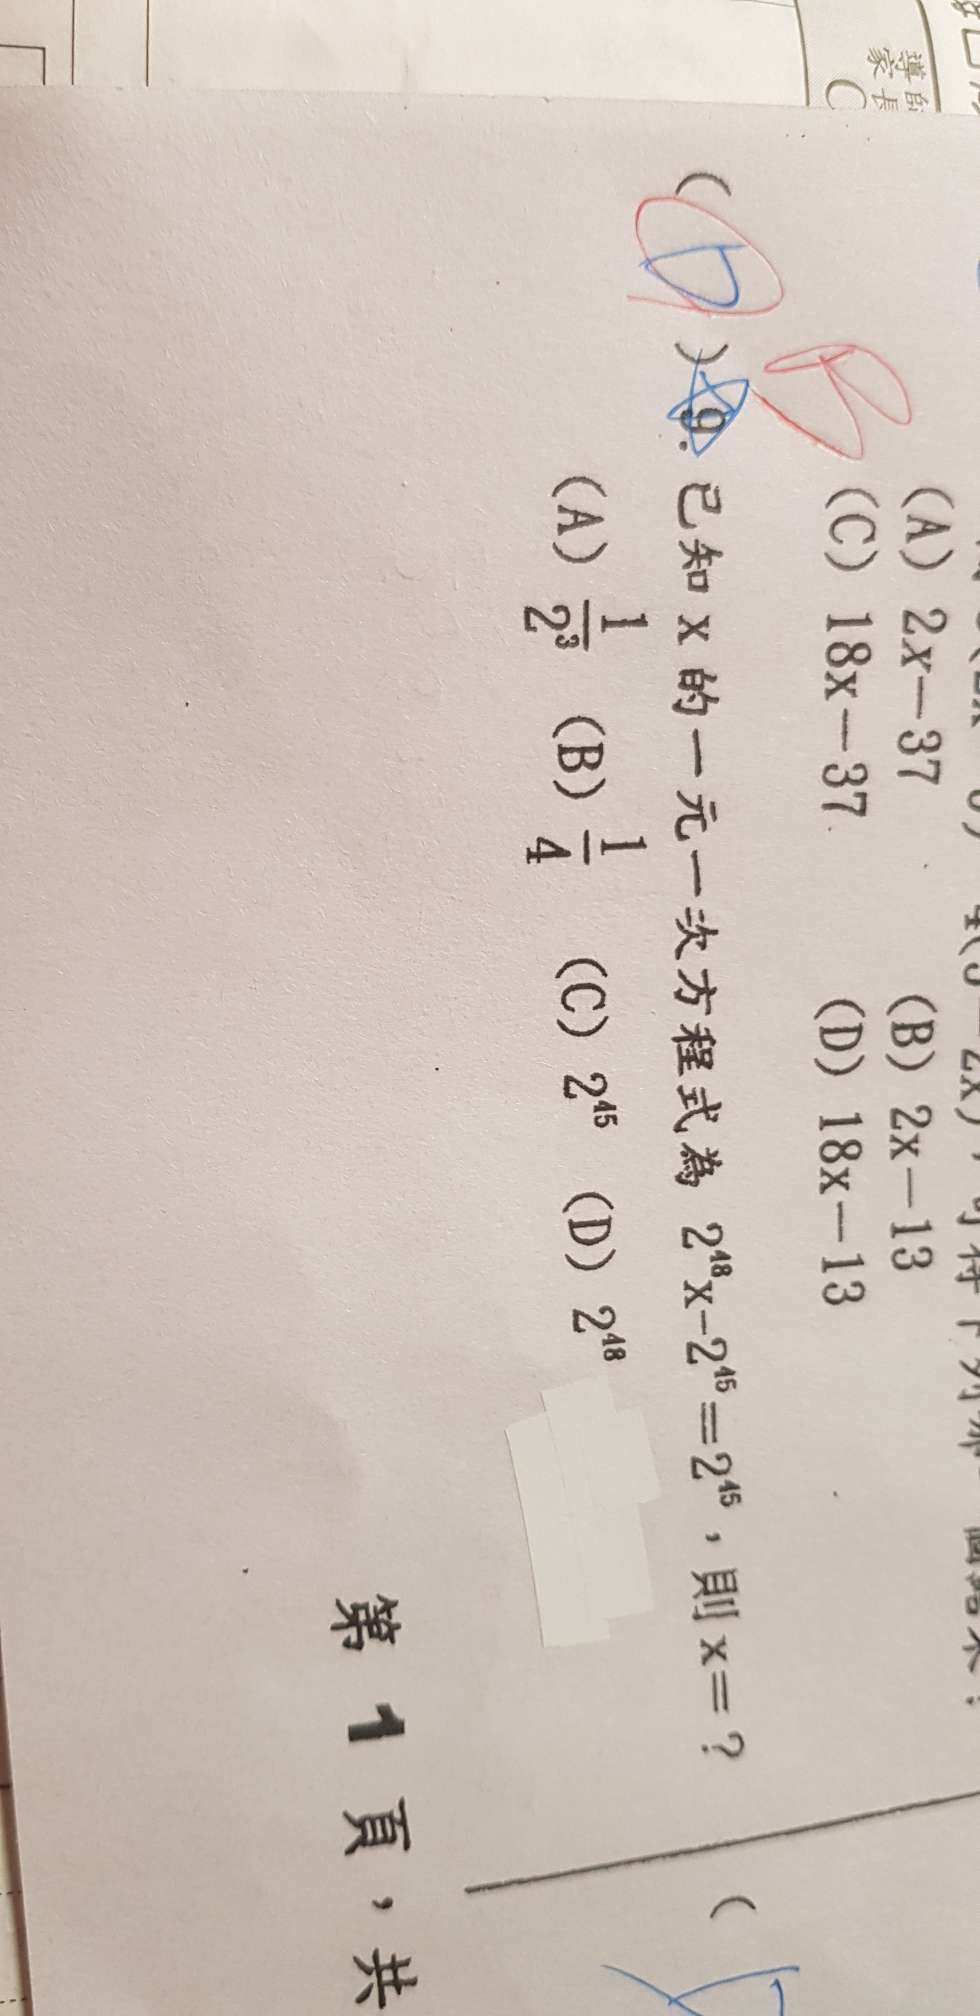 導師
家長
(A) 2x－37 (B) 2x－13
(C) 18x－37 (D) 18x－13
B
( D ) 9. 已知 x 的一元一次方程式為 2⁴⁸x－2⁴⁵＝2⁴⁵，則 x＝？
(A) 1/2³ (B) 1/4 (C) 2⁴⁵ (D) 2⁴⁸
第 1 頁，共